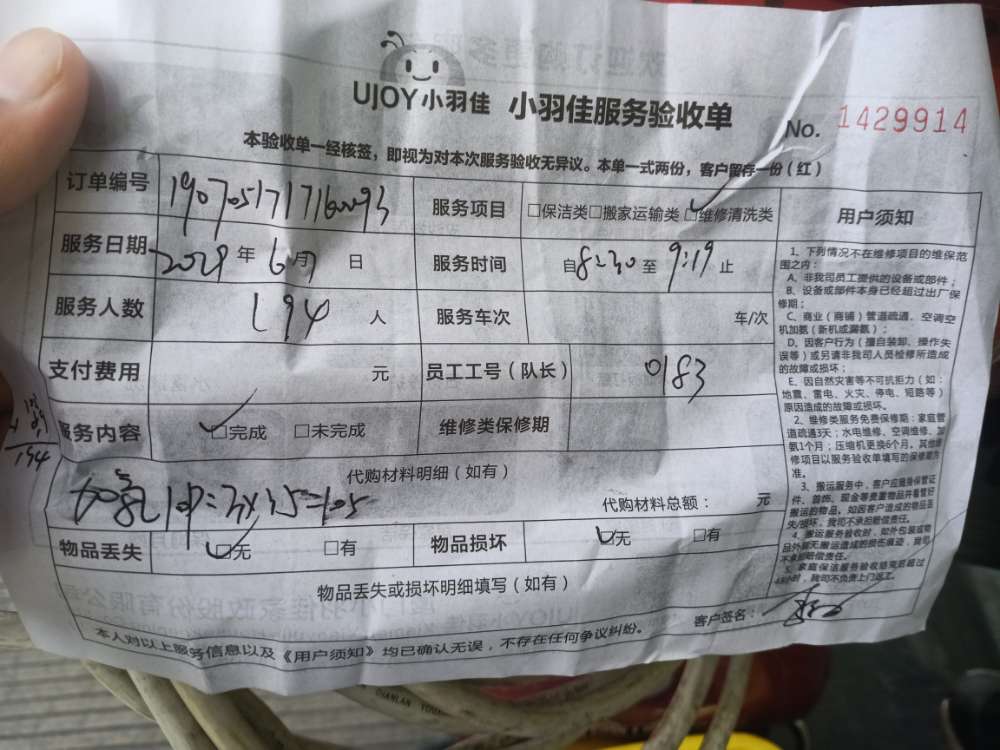 UJOY小羽佳 小羽佳服务验收单
No. 1429914
本验收单一经核签，即视为对本次服务验收无异议。本单一式两份，客户留存一份（红）
订单编号
服务项目 □保洁类□搬家运输类□维修清洗类
服务日期 年 6月 日
服务时间 自8:30至 9:19 止
服务人数 人
服务车次 车/次
支付费用 元
员工工号（队长） 0183
服务内容 □完成 □未完成
维修类保修期
代购材料明细（如有）
代购材料总额： 元
物品丢失 □无 □有
物品损坏 □无 □有
物品丢失或损坏明细填写（如有）
用户须知
1、下列情况不在维修项目的维保范
围之内：
A、非我司员工提供的设备或部件；
B、设备或部件本身已经超过出厂保
修期；
C、商业（商铺）管道疏通、空调空
机加氨（新机或漏氨）；
D、因客户行为（擅自装卸、操作失
误等）或另请非我司人员检修所造成
的故障或损坏；
E、因自然灾害等不可抗拒力（如：
地震、雷电、火灾、停电、短路等）
原因造成的故障或损坏。
2、维修类服务免费保修期：家庭管
道疏通3天；水电维修、空调维修、加
氨1个月；压缩机更换6个月，其他维
修项目以服务验收单填写的保修期为
准。
3、搬运服务中，客户应随身保管证
件、首饰、现金等贵重物品并看管好
搬运的物品。如因客户造成的物品丢
失/损坏，我司不承担赔偿责任。
4、搬运服务验收时，如外包装或物
品外观无搬运造成的损伤痕迹，我司
不承担赔偿责任。
5、家庭保洁服务验收结束后超过
48小时，我司不负责上门返工。
客户签名：
本人对以上服务信息以及《用户须知》均已确认无误，不存在任何争议纠纷。